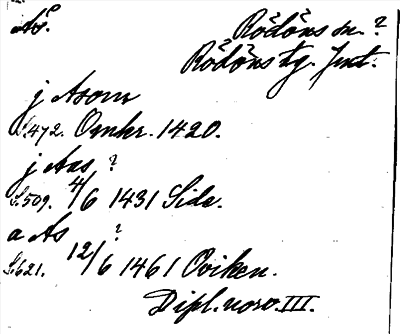 Ås.
Rödöns sn. ?
Rödöns tg. Jmt.
j Asom
S. 472. Omkr. 1420.
j Aas ?
S. 509. 4/6 1431 Side.
a As ?
S. 621. 12/6 1461 Oviken.
Dipl. norv. III.